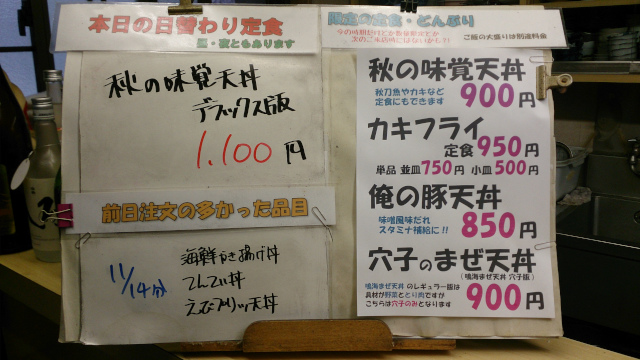 本日の日替わり定食
昼・夜ともあります
秋の味覚天丼
デラックス版
1,100円
前日注文の多かった品目
11/14分
海鮮かき揚げ丼
てんてい丼
えびプリッツ天丼
限定の定食・どんぶり
ご飯の大盛りは別途料金
秋の味覚天丼
秋刀魚やカキなど
定食にもできます
900円
カキフライ
定食950円
単品 並皿750円 小皿500円
俺の豚天丼
味噌風味だれ
スタミナ補給に!!
850円
穴子のまぜ天丼
(鳴海まぜ天丼 穴子版)
鳴海まぜ天丼 のレギュラー版は
具材が野菜ととり肉ですが
こちらは穴子のみとなります
900円